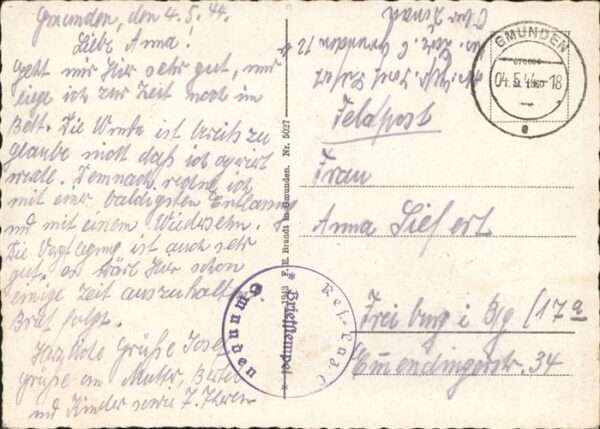 Gmunden, den 4.5.44.
Liebe Anna!
Geht mir hier sehr gut, nur
liege ich zur Zeit noch im
Bett. Die Wunde ist bereits zu
glaube nicht daß ich operiert
werde. Demnach rechne ich
mit einer baldigsten Entlassung
und mit einem Wiedersehn.
Die Verpflegung ist auch sehr
gut, es wär hier schon
einige Zeit auszuhalten
Brief folgt.
Grüße Josef
Grüße an Mutter,
und Kinder sowie
F. E. Brandt in Gmunden. Nr. 5027
1943
GMUNDEN
04.5.44-18
e
Feldpost
Frau
Anna Siefert
Freiburg i Bg (17a
Emmendingerstr. 34
Gmunden
* Briefstempel *
Res.-Laz.